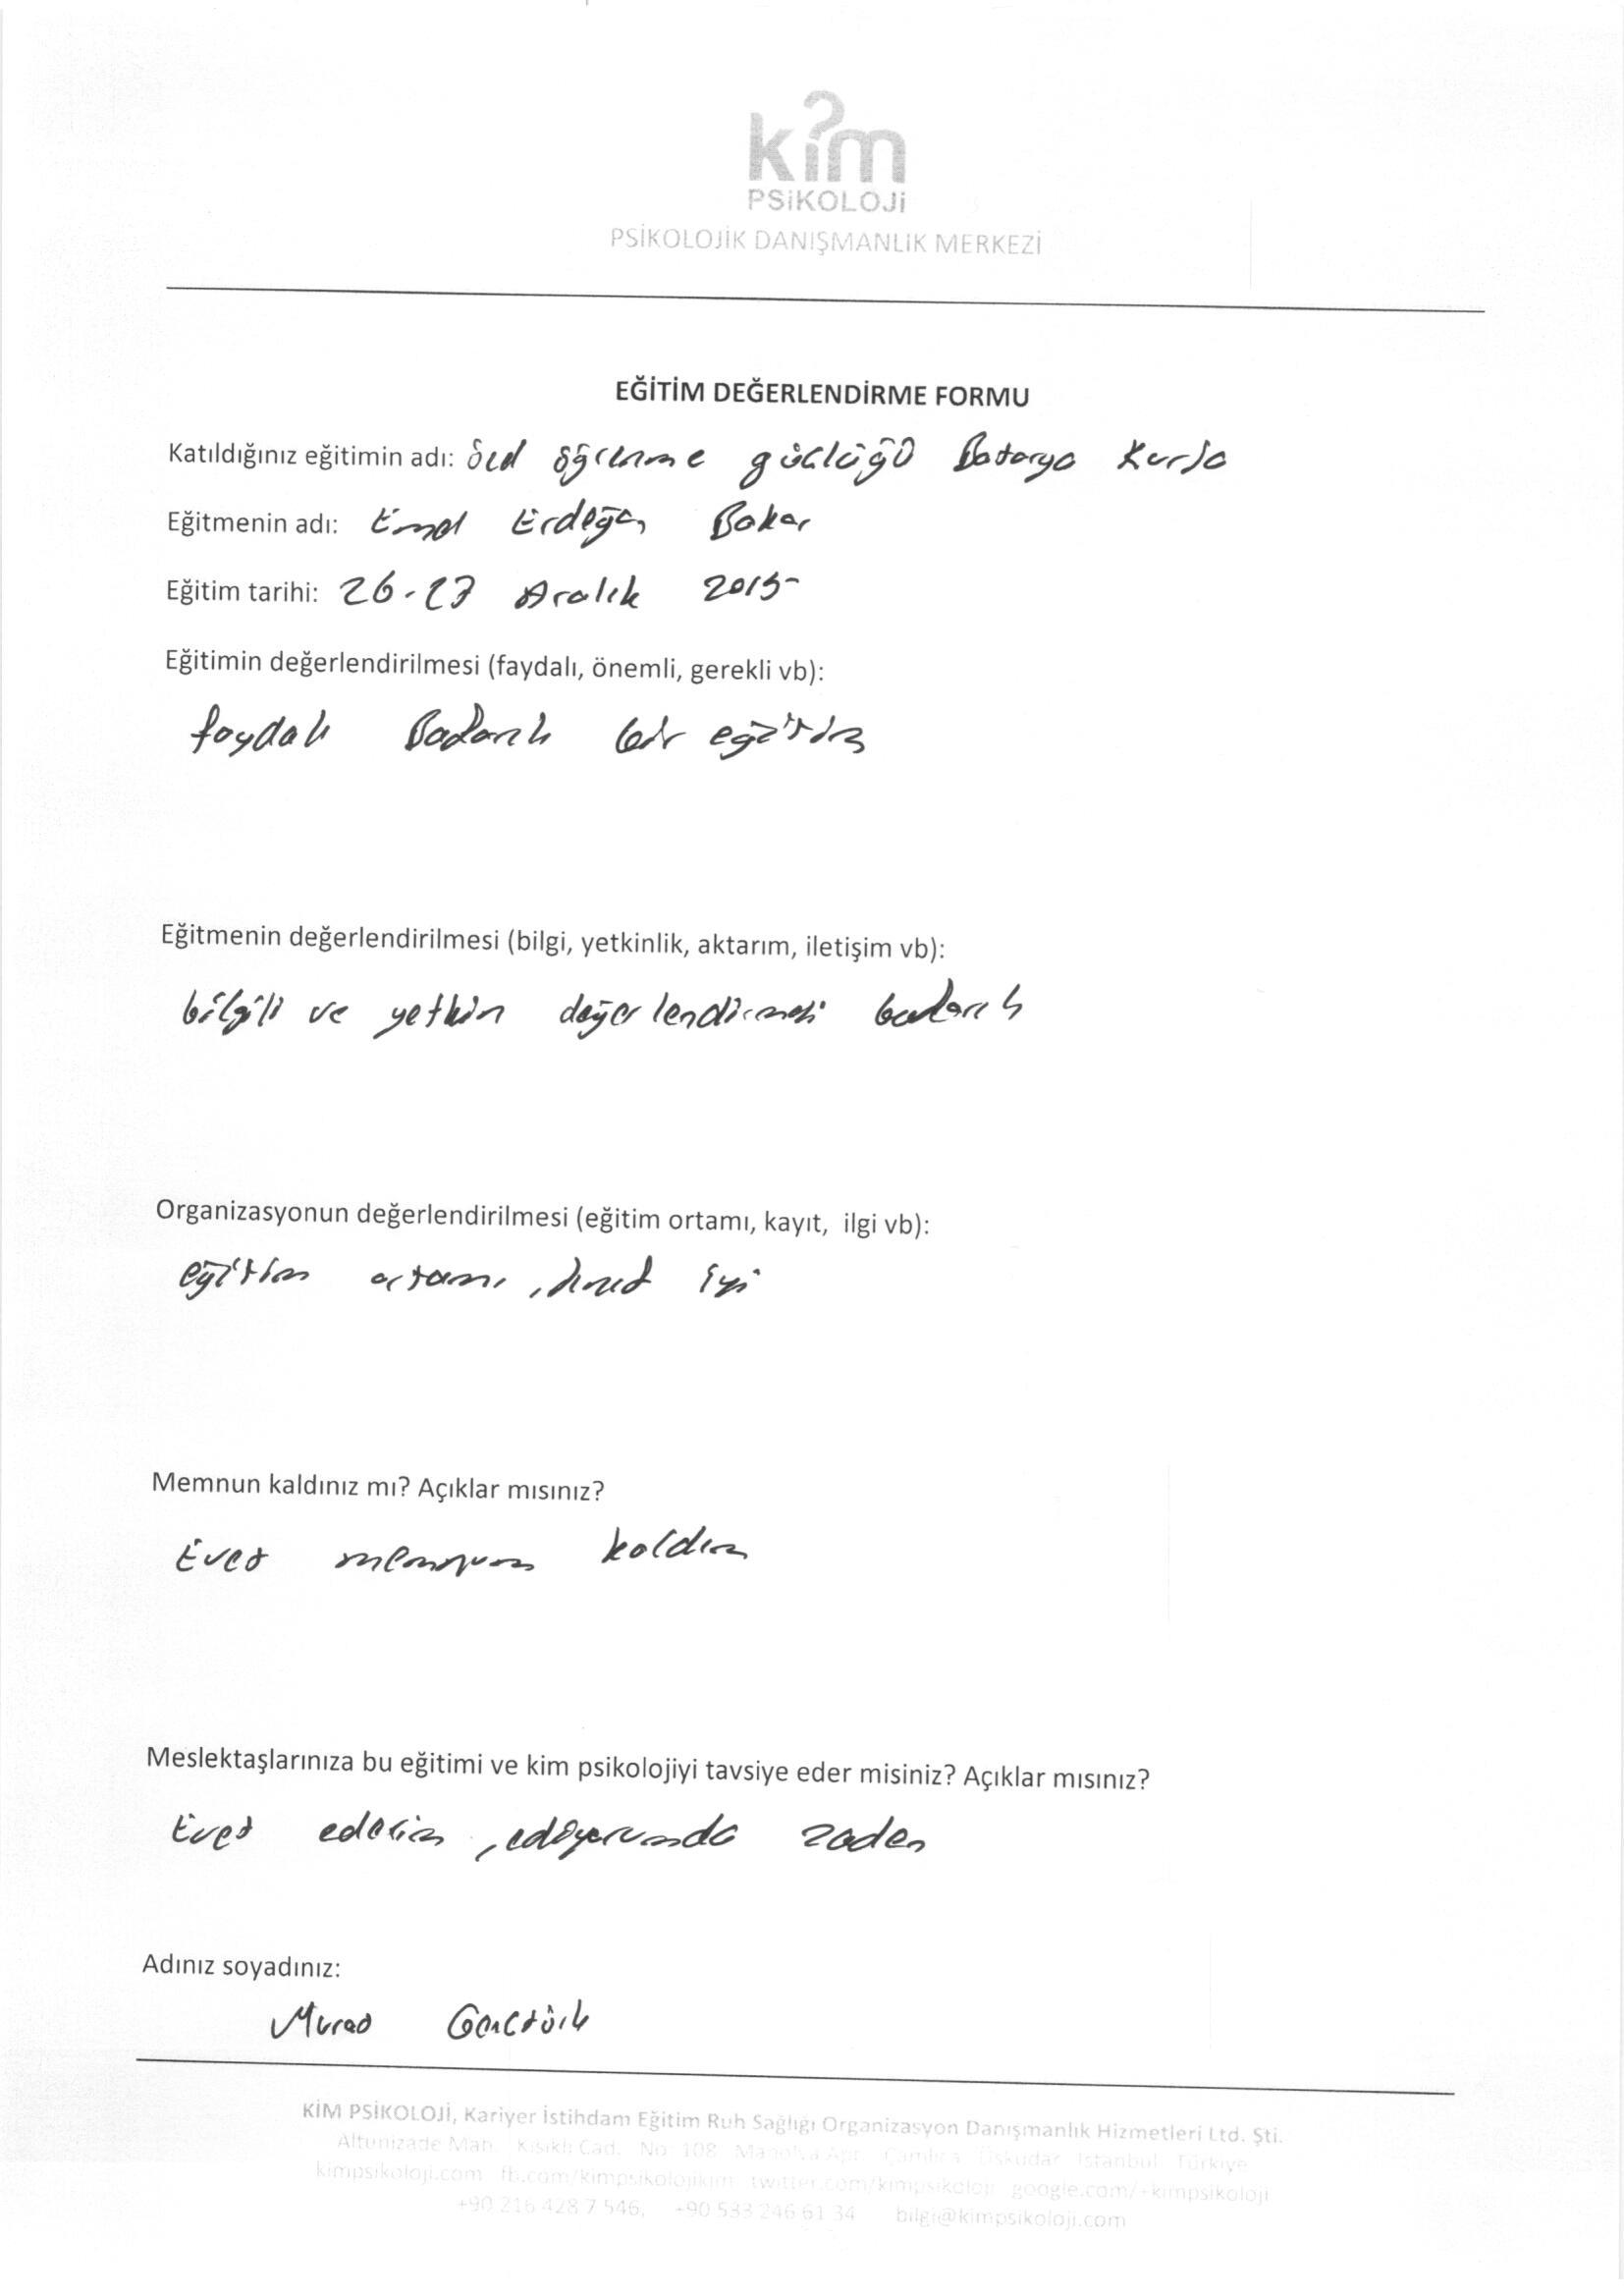 kim
PSiKOLOJi
PSİKOLOJİK DANIŞMANLIK MERKEZİ
EĞİTİM DEĞERLENDİRME FORMU
Katıldığınız eğitimin adı: öğrenme güçlüğü Batarya Kursu
Eğitmenin adı: Emel Erdoğan Bakar
Eğitim tarihi: 26-27 Aralık 2015
Eğitimin değerlendirilmesi (faydalı, önemli, gerekli vb):
faydalı Başarılı bir eğitim
Eğitmenin değerlendirilmesi (bilgi, yetkinlik, aktarım, iletişim vb):
bilgili ve yetkin değerlendirmesi başarılı
Organizasyonun değerlendirilmesi (eğitim ortamı, kayıt, ilgi vb):
eğitim ortamı, iyi
Memnun kaldınız mı? Açıklar mısınız?
Evet memnun kaldım
Meslektaşlarınıza bu eğitimi ve kim psikolojiyi tavsiye eder misiniz? Açıklar mısınız?
Evet ederim, ediyorumda zaten
Adınız soyadınız:
Murat Gençtürk
KİM PSİKOLOJİ, Kariyer İstihdam Eğitim Ruh Sağlığı Organizasyon Danışmanlık Hizmetleri Ltd. Şti.
Altunizade Mah. Kısıklı Cad. No 108 Çamlıca Üsküdar İstanbul Türkiye
kimpsikoloji.com fb.com/kimpsikolojikim twitter.com/kimpsikoloji google.com/+kimpsikoloji
+90 216 428 7 546, +90 533 246 61 34 bilgi@kimpsikoloji.com